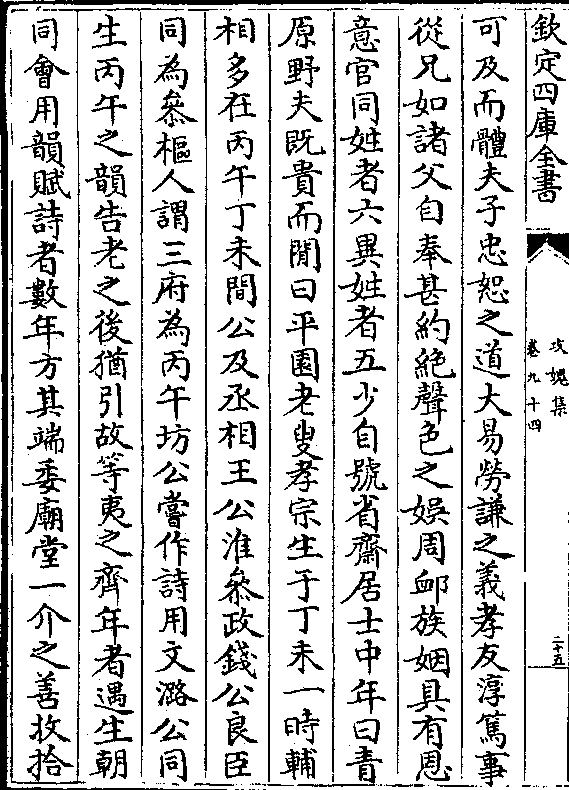 欽定四庫全書
攻媿集
卷九十四
二十五
可及而體夫子忠恕之道大易勞謙之義孝友淳篤事
從兄如諸父自奉甚約絶聲色之娱周卹族姻具有恩
意官同姓者六異姓者五少自號省齋居士中年曰青
原野夫既貴而閒曰平園老叟孝宗生于丁未一時輔
相多在丙午丁未間公及丞相王公淮叅政錢公良臣
同為叅樞人謂三府為丙午坊公嘗作詩用文潞公同
生丙午之韻告老之後猶引故等夷之齊年者遇生朝
同會用韻賦詩者數年方其端委廟堂一介之善收拾